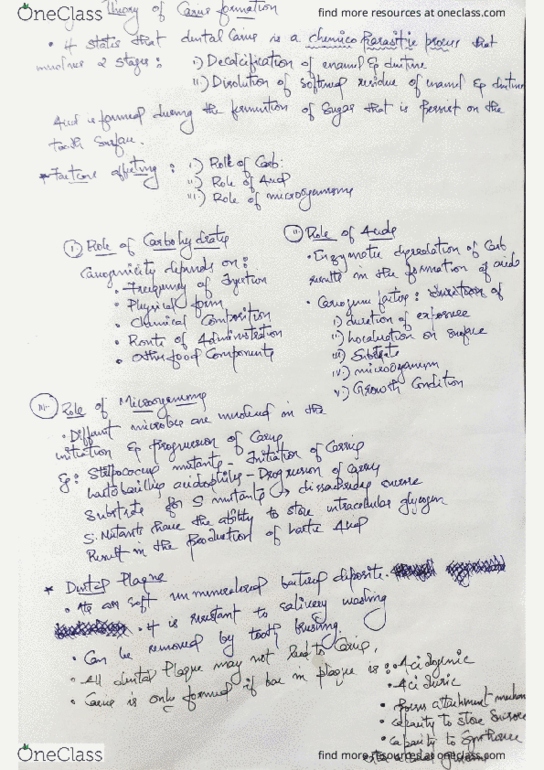 OneClass
find more resources at oneclass.com
Theory of Caries formation
• it states that dental Caries is a chemico Parasitic process that
involves 2 stages : i) Decalcification of enamel & dentine
ii) Disolution of softned residue of enamel & dentine
Acid is formed during the fermention of sugar that is Persist on the
tooth surface.
* Factors affecting : i) Role of Carb:
ii) Role of Acid
iii) Role of microorganisms
i) Role of Carbohydrates
Cariogenicity depends on :
• Frequency of Ingestion
• Physical form
• Chemical Composition
• Route of Administration
• Other food Components
ii) Role of Acids
• Enzymatic degredation of Carb
results in the formation of acids
• Cariogenic factors :
i) duration of exposure
ii) localization on surface
iii) Substrate
iv) microorganism
v) Growth Condition
iii) Role of Microorganisms
• Different microbes are involved in the
initiation & progression of Caries
Eg : Streptococcus mutants - Initiation of Carries
lactobacillus acidophilus - Progression of caries
Substrate for S mutants → dissacharides sucrose
S. Mutants have the ability to store intracellular glycogen
Result in the Production of lactic Acid
* Dental Plaque
• soft unmineralized bacterial deposite.
• it is resistant to salivary washing
• Can be removed by tooth brushing
• All dental Plaque may not lead to Caries.
• Caries is only formed if bac in plaque is : • Acidogenic
• Aciduric
• Posess attachment
• capacity to store Sucrose
• Capacity to
OneClass
find more resources at oneclass.com